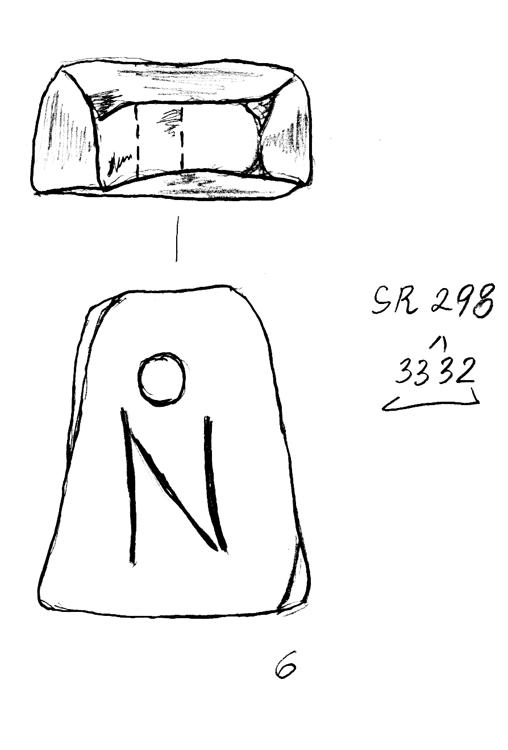 SR 298
^
3332
N
6